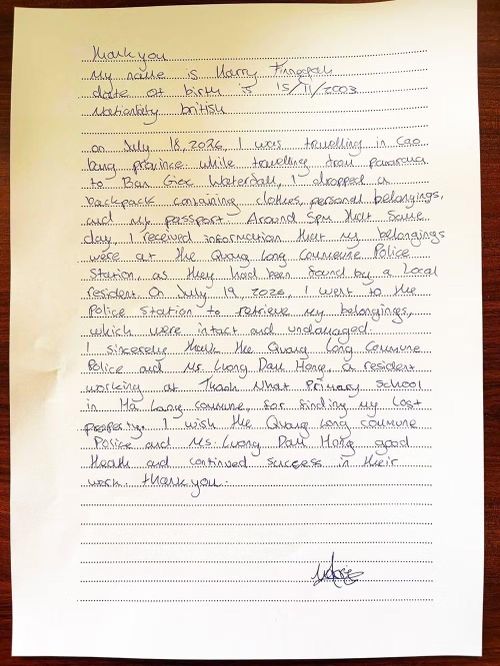 Thank you
My name is Harry Finnegan
date of birth is 15/11/2003
Nationality british
on July 18, 2026, I was travelling in Cao
bang province. while travelling from panorama
to Ban Gioc Waterfall, I dropped a
backpack containing clothes, personal belongings,
and my passport. Around 5pm that same
day, I received information that my belongings
were at the Quang Long Commune Police
Station, as they had been found by a local
resident. On July 19, 2026, I went to the
Police station to retrieve my belongings,
which were intact and undamaged.
I sincerely thank the Quang Long Commune
Police and Mr. Luong Dam Hong, a resident
working at Thanh Nhat Primary School
in Ha Lang commune, for finding my lost
property. I wish the Quang Long commune
Police and Ms. Luong Dam Hong good
Health and continued success in their
work thank you.